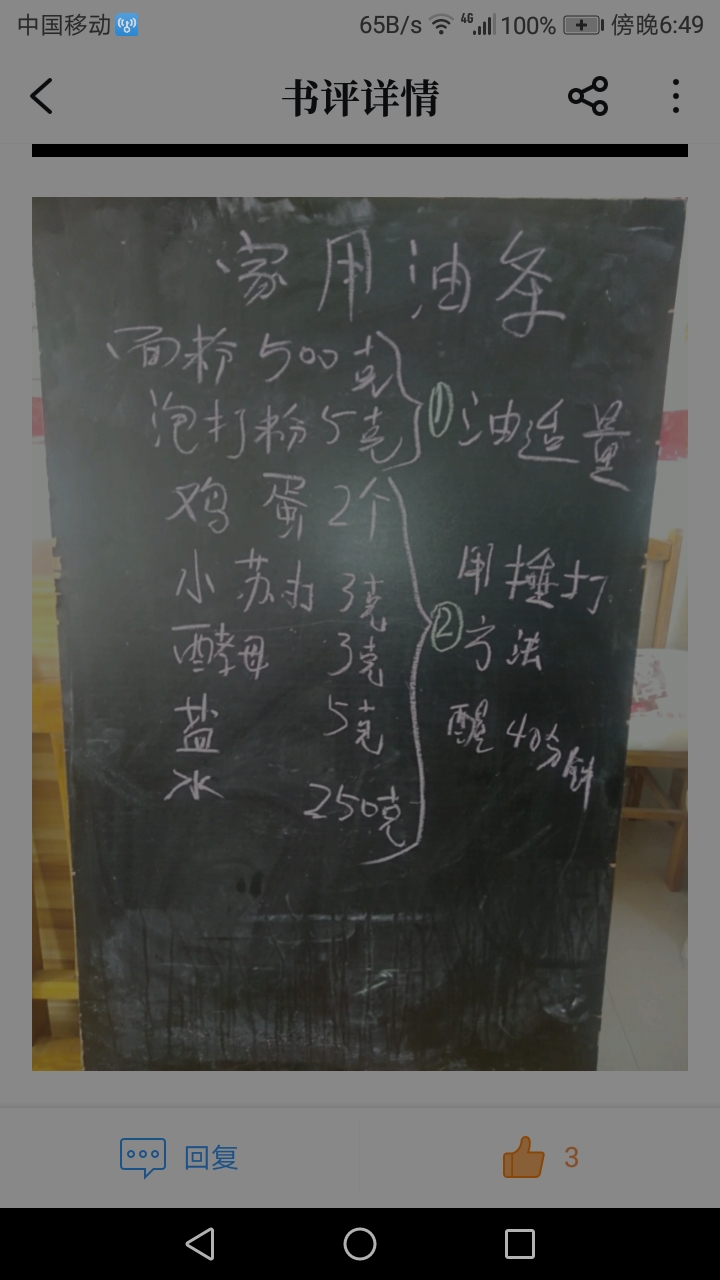 中国移动 65B/s 4G 100% 傍晚6:49
书评详情
家用油条
面粉 500克
泡打粉 5克
① 油适量
鸡蛋 2个
小苏打 3克
酵母 3克
盐 5克
水 250克
② 用捶打
方法
醒 40分钟
回复 3